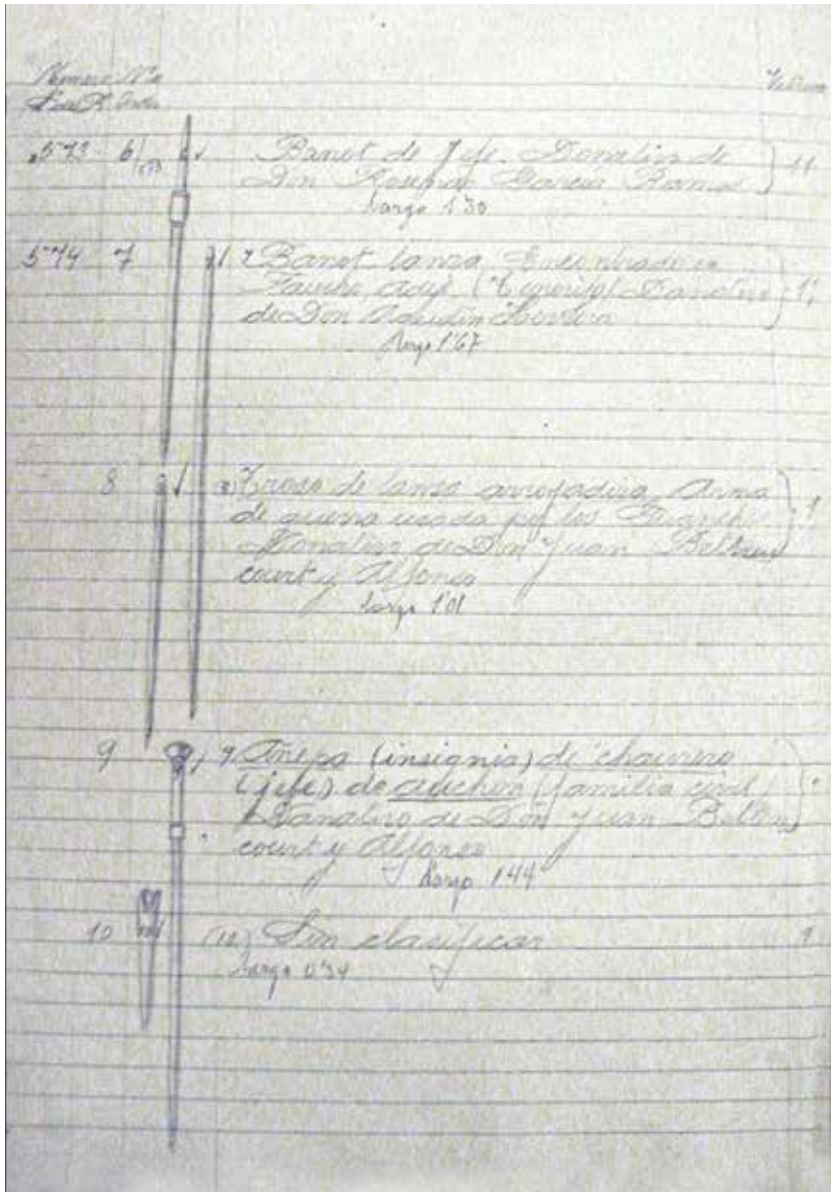 Numero Nº
Vitrina
573 6/573 6 Banot de Jefe. Donativo de
Don Rosendo Garcia Ramos 11
largo 1'30
574 7 7 Banot lanza Encontrado en
(Tenerife) Donativo
de Don
largo 1'67
8 8 8) Trozo de lanza arrojadiza, Arma
de guerra usada por los Guanches
Donativo de Don Juan Bethen
court y Alfonso
largo 1'01
9 9 Añepa (insignia) de chaurero
(jefe) de auchon (familia civil)
Donativo de Don Juan Bethen
court y Alfonso
largo 1'44
10 (10) Sin clasificar
largo 0'34